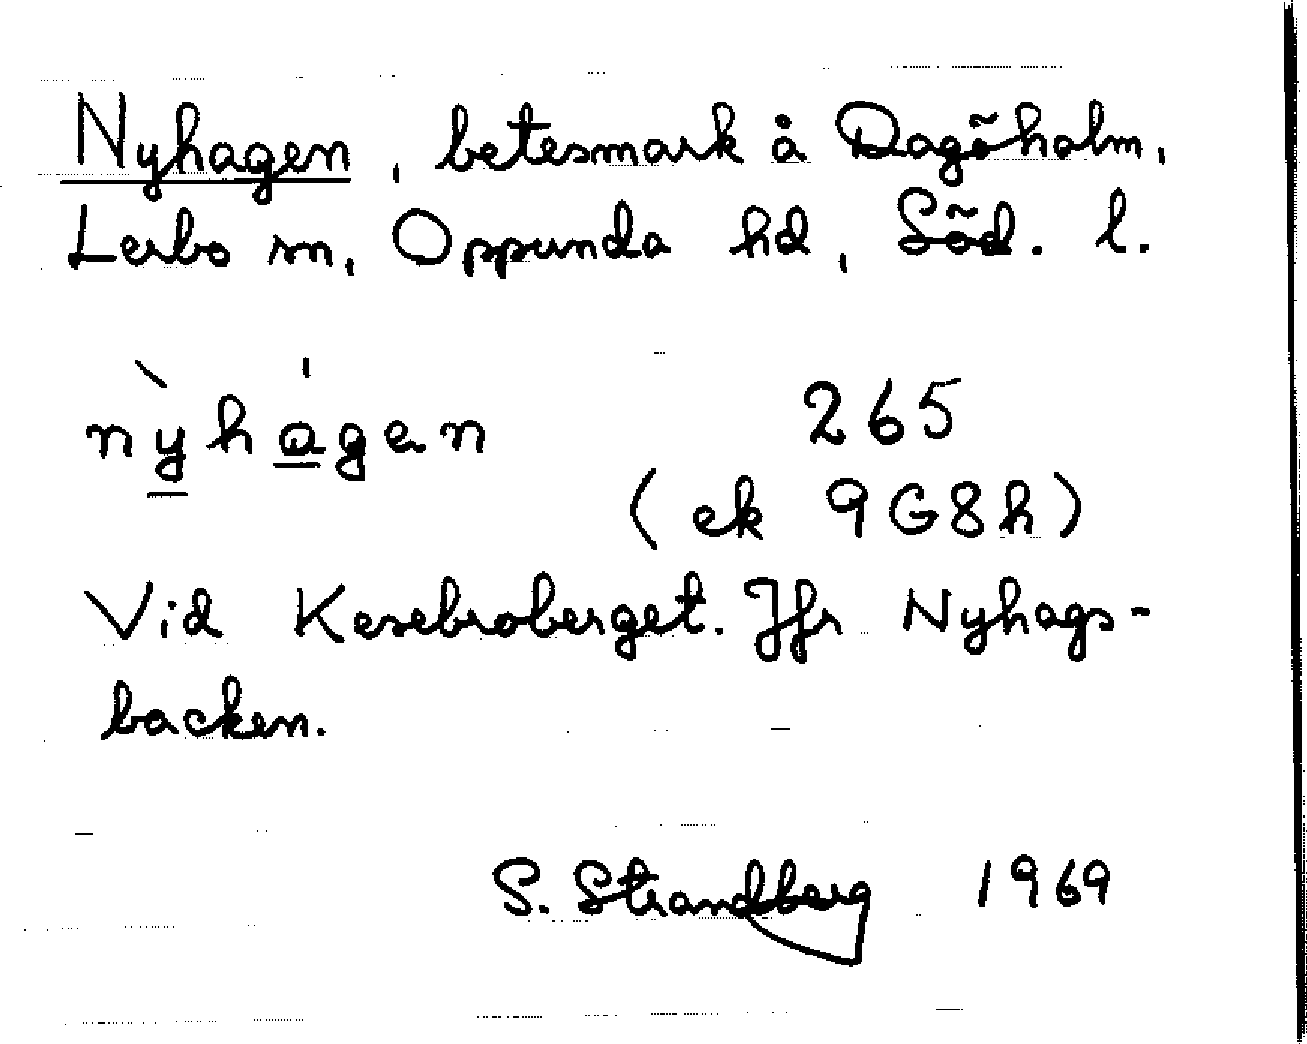 Nyhagen, betesmark å Dagöholm,
Lerbo sn, Oppunda hd, Söd. l.
nỳhágen 265
(ek 9G8h)
Vid Kesebroberget. Jfr Nyhags-
backen.
S. Strandberg 1969